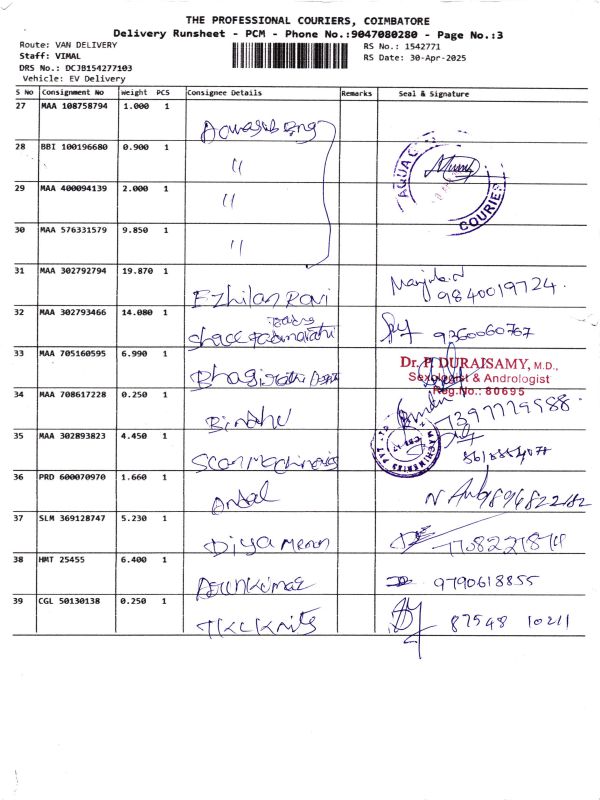 THE PROFESSIONAL COURIERS, COIMBATORE
Delivery Runsheet - PCM - Phone No.:9047080280 - Page No.:3
Route: VAN DELIVERY
RS No.: 1542771
Staff: VIMAL
RS Date: 30-Apr-2025
DRS No.: DCJB154277103
Vehicle: EV Delivery
S No Consignment No Weight PCS Consignee Details Remarks Seal & Signature
27 MAA 108758794 1.000 1
28 BBI 100196680 0.900 1 "
29 MAA 400094139 2.000 1 "
30 MAA 576331579 9.850 1 "
AQUA
COURIER
31 MAA 302792794 19.870 1 Ezhilan Ravi 9840019724.
32 MAA 302793466 14.080 1 9360060767
33 MAA 705160595 6.990 1
Dr. P. DURAISAMY, M.D.,
Sexologist & Andrologist
Reg.No.: 80695
34 MAA 708617228 0.250 1 Bindhu
35 MAA 302893823 4.450 1
MACHINERIES PVT LTD
36 PRD 600070970 1.660 1
37 SLM 369128747 5.230 1 Diya Menon
38 HMT 25455 6.400 1 Arunkumar 9790618855
39 CGL 50130138 0.250 1 87548 10211